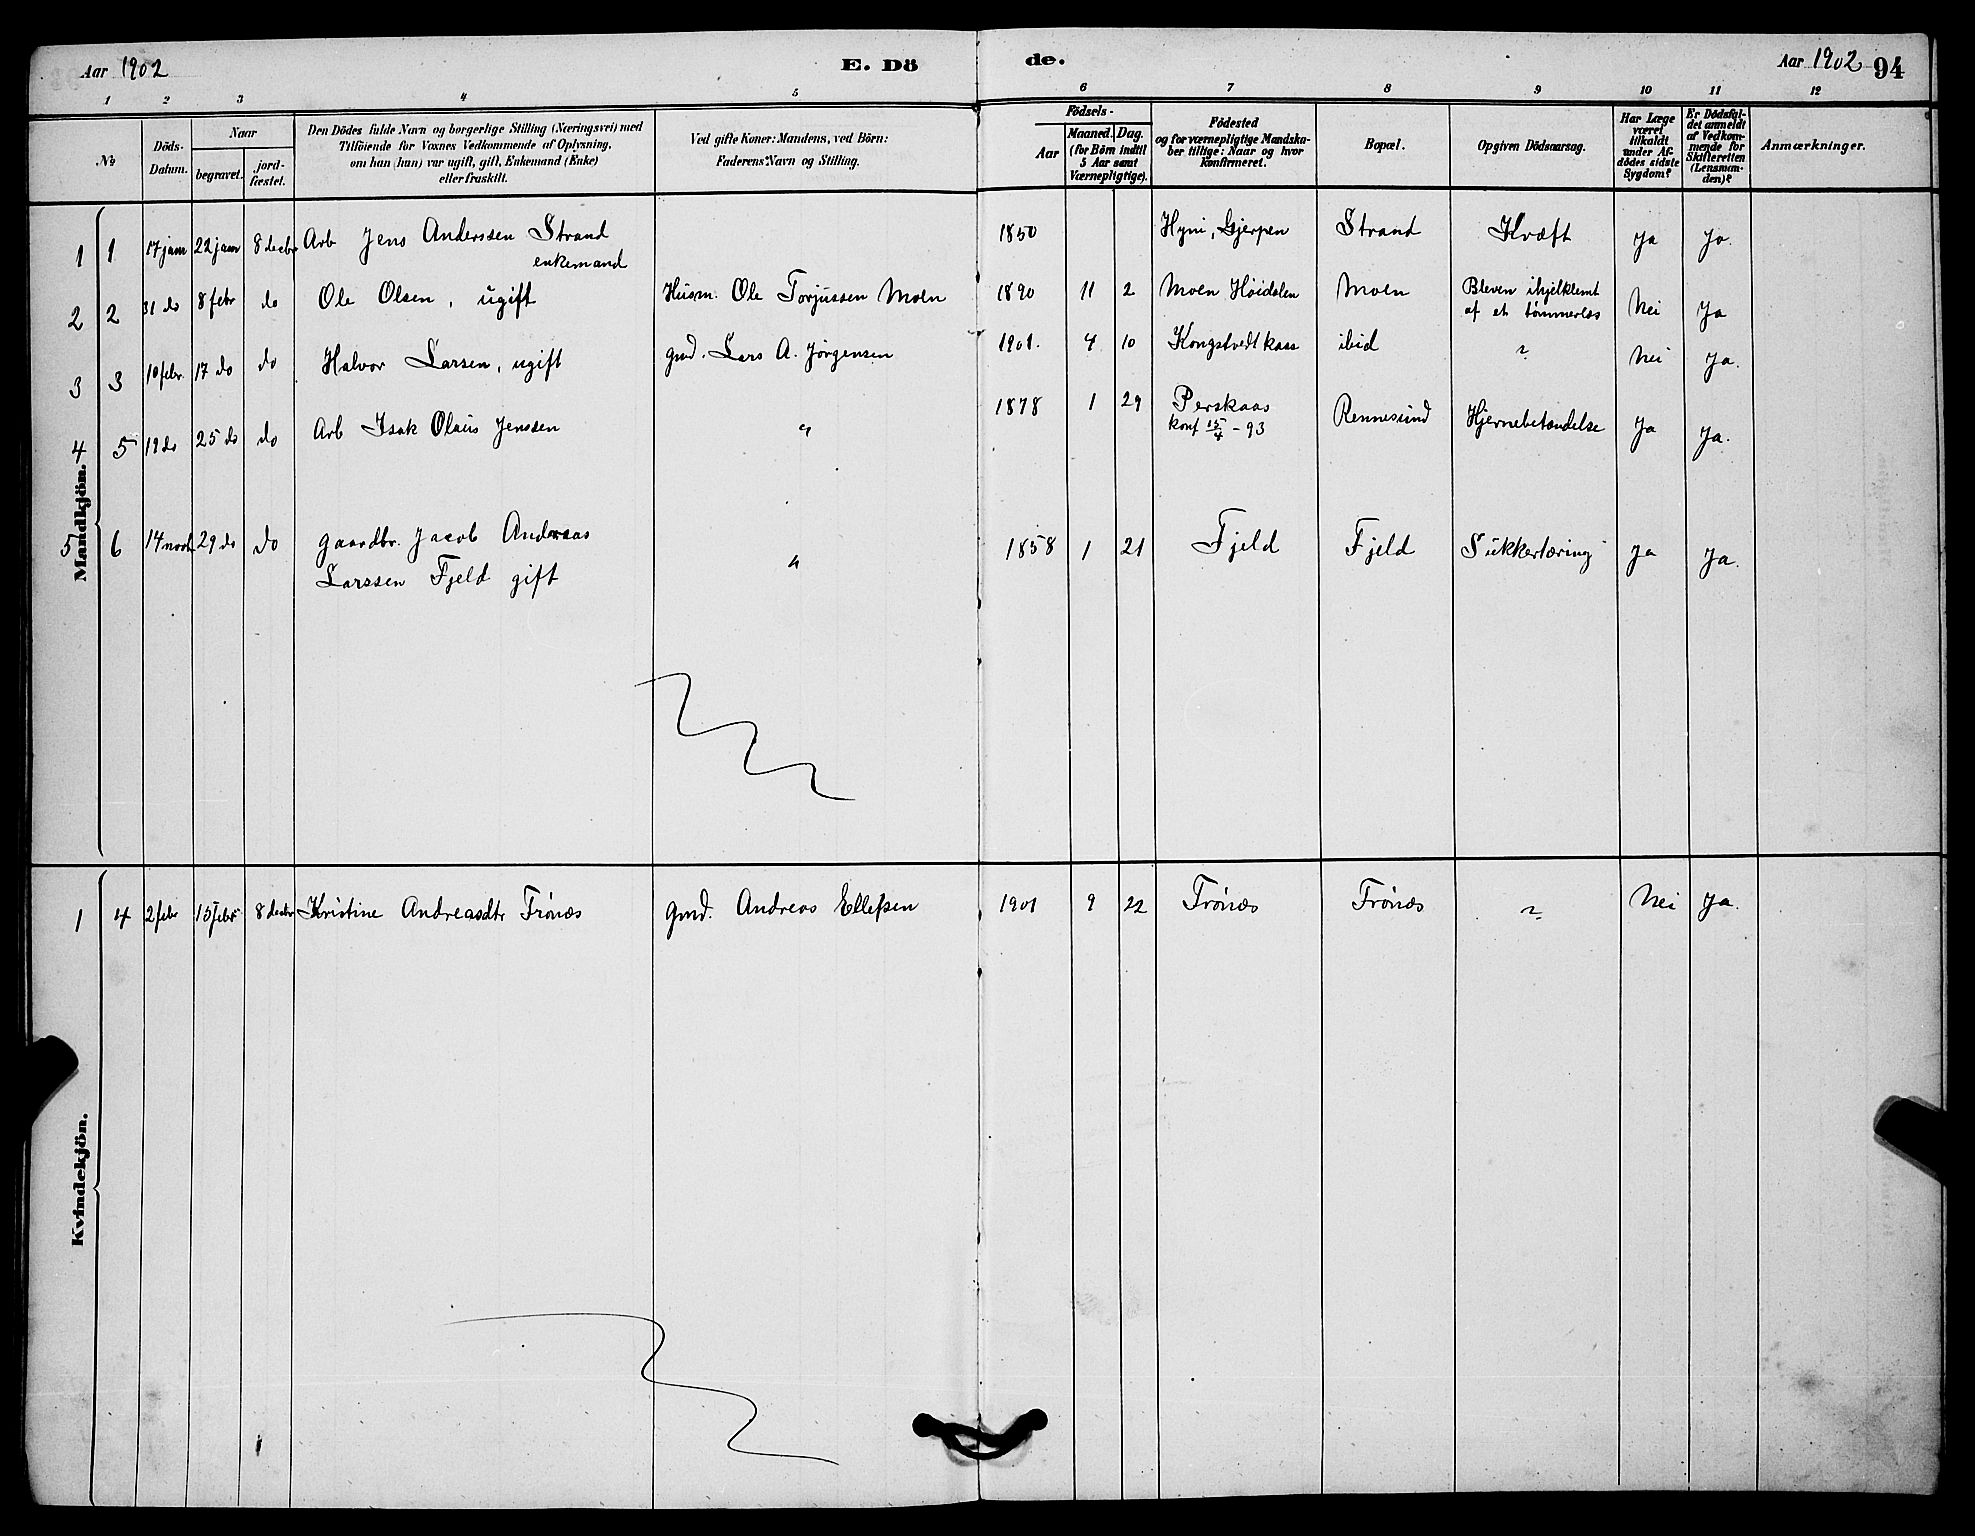 Aar 1902 E. Dö
de. Aar 1902 94
1 2 3 4 5 6 7 8 9 10 11 12
№ Döds-Datum. Naar begravet. jordfæstet. Den Dödes fulde Navn og borgerlige Stilling (Næringsvei) med Tilföiende for Voxnes Vedkommende af Oplysning, om han (hun) var ugift, gift, Enkemand (Enke) eller fraskilt. Ved gifte Koner: Mandens, ved Börn: Faderens Navn og Stilling. Födsels- Aar Maaned. Dag. (for Börn indtil 5 Aar samt Værnepligtige). Födested og for værnepligtige Mandskaber tillige: Naar og hvor konfirmeret. Bopæl. Opgiven Dödsaarsag. Har Læge været tilkaldt under Afdödes sidste Sygdom? Er Dödsfaldet anmeldt af Vedkommende for Skifteretten (Lensmanden)? Anmærkninger.
Mandkjön.
1 1 17 jan 22 jan 8 decbr Arb Jens Anderssen Strand 1850 Hyni, Gjerpen Strand Kræft Ja Ja.
enkemand
2 2 31 do 8 febr do Ole Olsen, ugift Husm. Ole Torjussen Moen 1890 11 2 Moen Høidalen Moen Bleven ihjelklemt Nei Ja
af et tømmerlæs
3 3 10 febr. 17 do do Halvor Larsen, ugift gmd. Lars A. Jørgensen 1901. 4 10 Kongstvedtkaas ibid ? Nei Ja.
4 5 19 do 25 do do Arb Isak Olaus Jenssen " 1878 1 29 Perskaas Rennesund Hjernebetændelse Ja Ja.
konf 15/4 - 93
5 6 14 novb 29 do do gaardbr. Jacob Andreas " 1858 1 21 Fjeld Fjeld Sukkertæring Ja Ja.
Larssen Fjeld gift
Kvindekjön.
1 4 2 febr 15 febr 8 decbr Kristine Andreasdtr Frönæs gmd. Andreas Ellefsen 1901 9 22 Frönæs Frönæs ? Nei Ja.